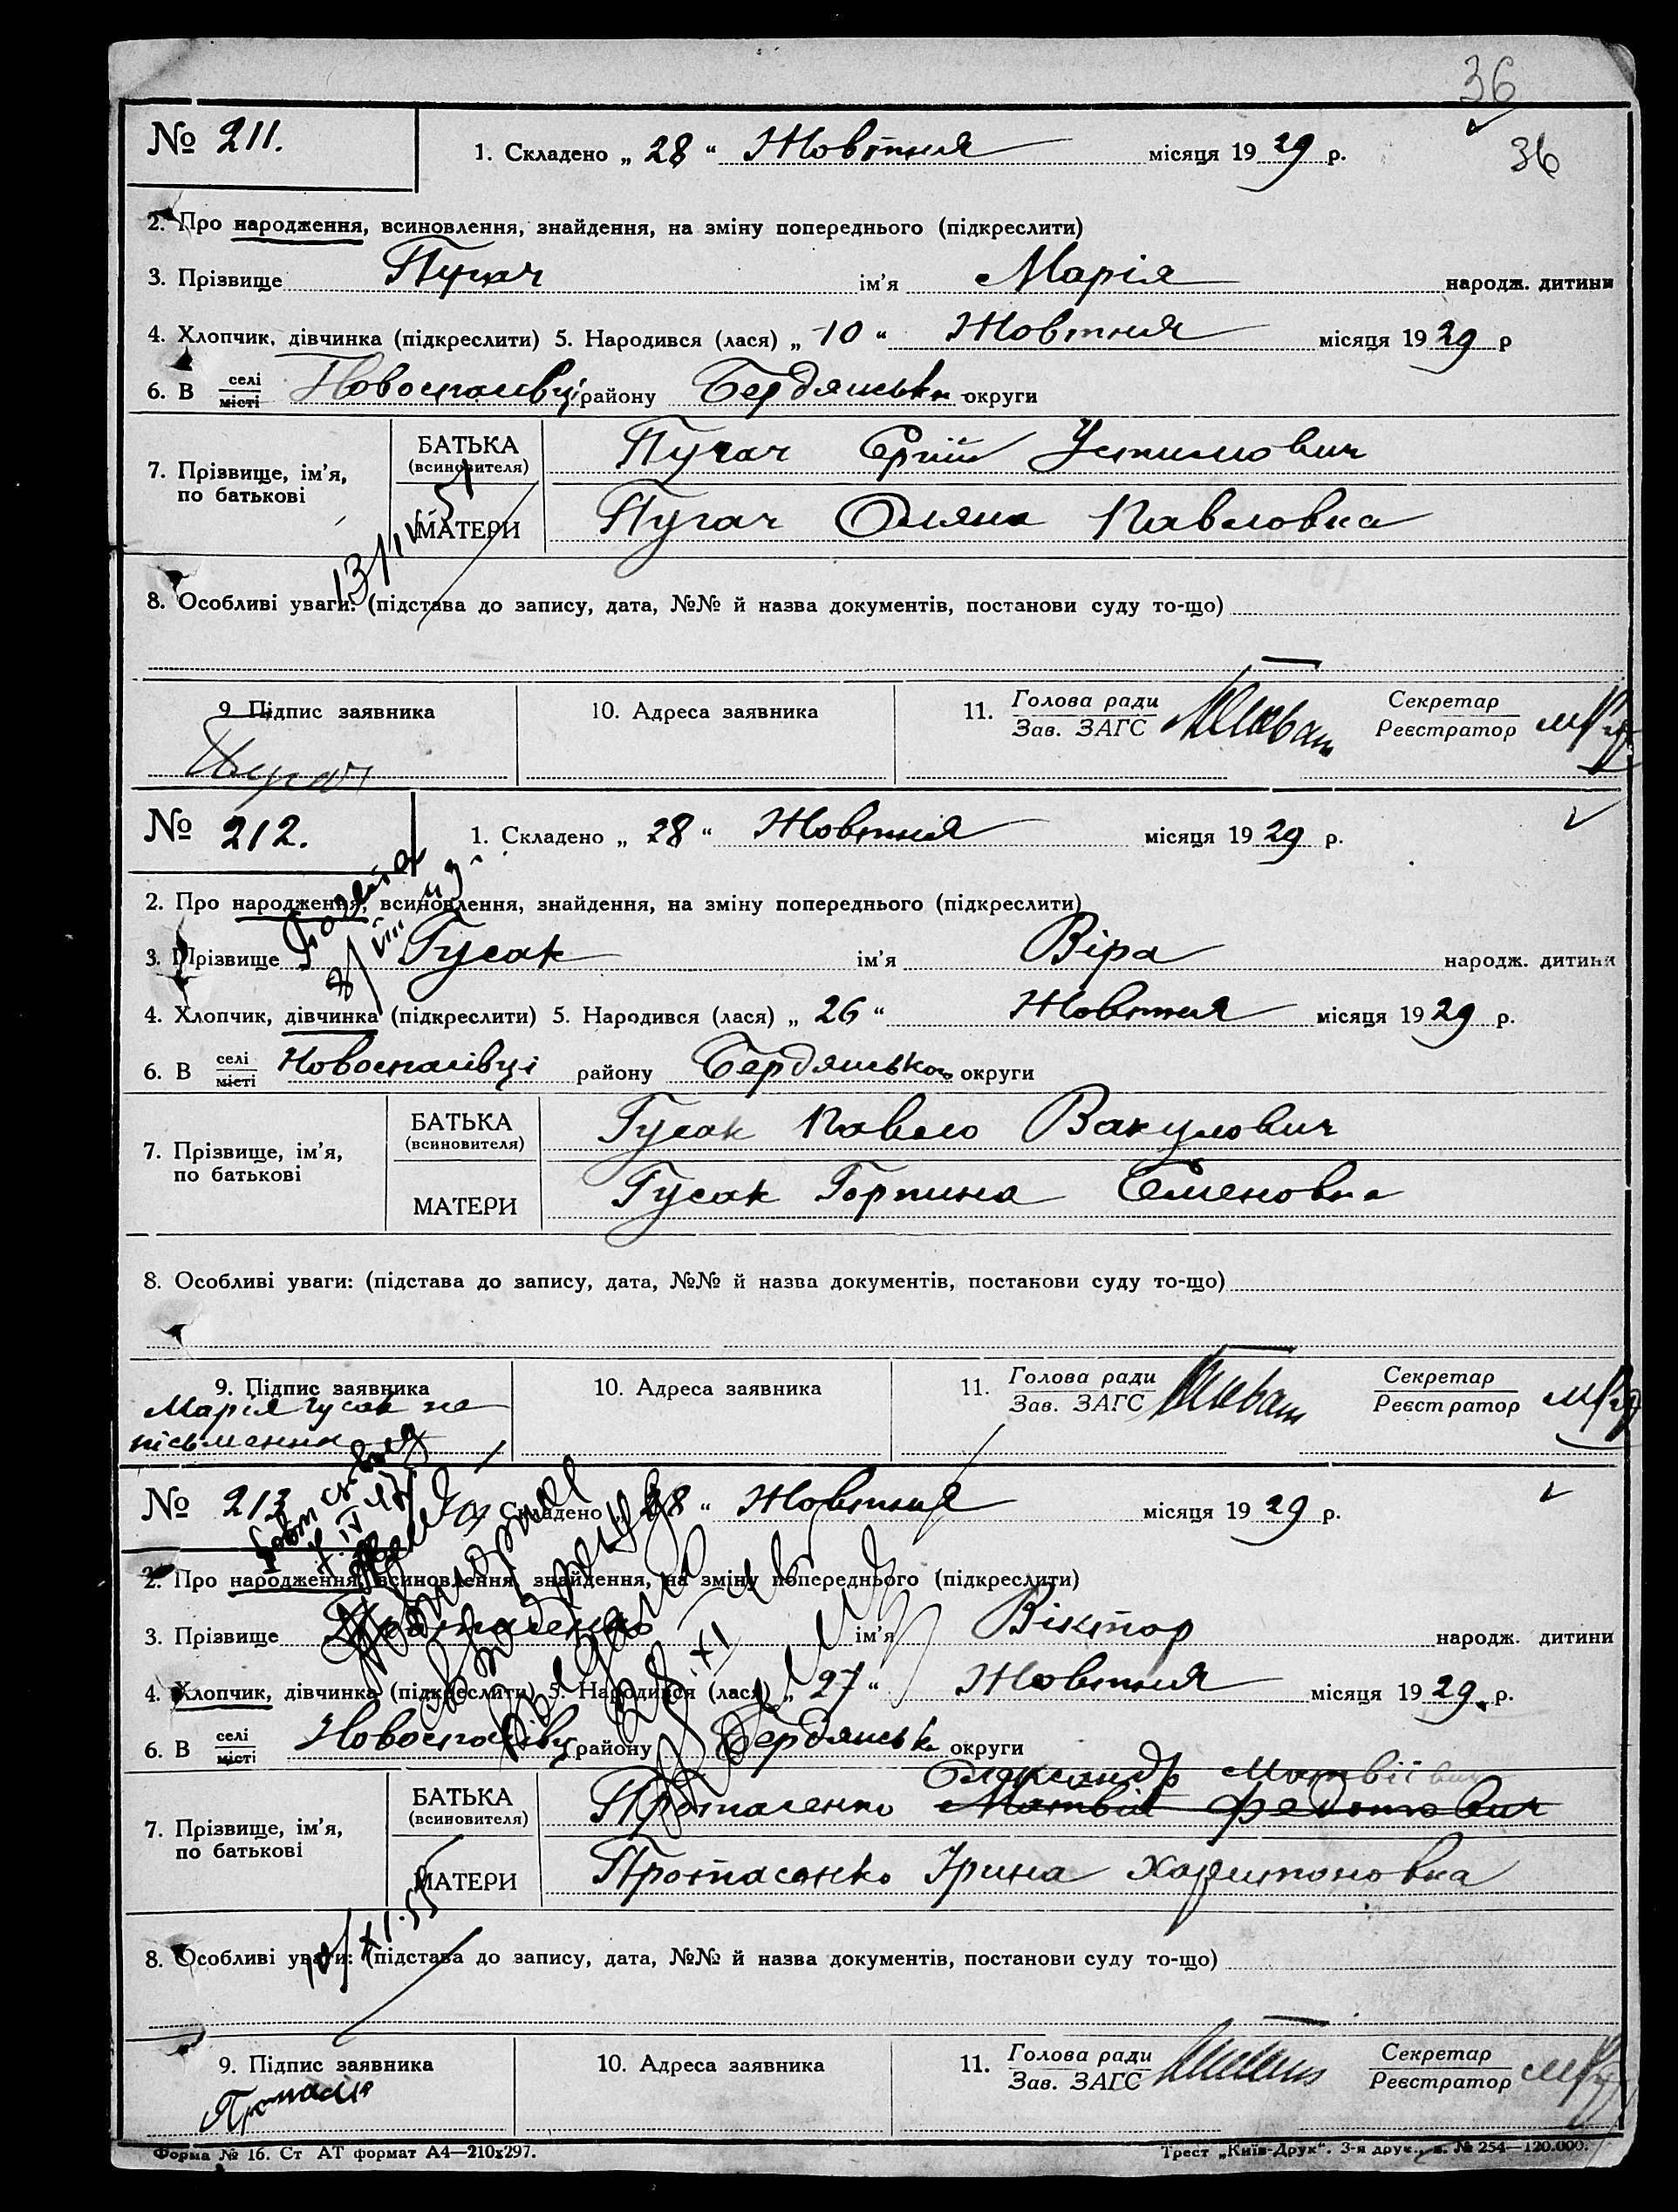 36
№ 211.
1. Складено „ 28 “ Жовтня місяця 1929 р.
36
2. Про народження, всиновлення, знайдення, на зміну попереднього (підкреслити)
3. Прізвище Пугач ім'я Марія народж. дитини
4. Хлопчик, дівчинка (підкреслити) 5. Народився (лася) „ 10 “ Жовтня місяця 1929 р
6. В селі місті Новоспасівці району Бердянськ округи
7. Прізвище, ім'я, по батькові
БАТЬКА (всиновителя) Пугач Сргій Устимович
МАТЕРИ Пугач Оляна Павловна
13/IV-51
8. Особливі уваги: (підстава до запису, дата, №№ й назва документів, постанови суду то-що)
9 Підпис заявника
10. Адреса заявника
11. Голова ради Зав. ЗАГС
Секретар Реєстратор
Пугач
№ 212.
1. Складено „ 28 “ Жовтня місяця 1929 р.
2. Про народження, всиновлення, знайдення, на зміну попереднього (підкреслити)
3. Прізвище Гусак ім'я Віра народж. дитини
4. Хлопчик, дівчинка (підкреслити) 5. Народився (лася) „ 26 “ Жовтня місяця 1929 р.
6. В селі місті Новоспасівці району Бердянської округи
7. Прізвище, ім'я, по батькові
БАТЬКА (всиновителя) Гусак Павло Вакулович
МАТЕРИ Гусак Горпина Семеновна
8. Особливі уваги: (підстава до запису, дата, №№ й назва документів, постанови суду то-що)
9. Підпис заявника
10. Адреса заявника
11. Голова ради Зав. ЗАГС
Секретар Реєстратор
Марія Гусак не
пісьменна
№ 213
1. Складено „ 28 “ Жовтня місяця 1929 р.
2. Про народження, всиновлення, знайдення, на зміну попереднього (підкреслити)
3. Прізвище Протасенко ім'я Віктор народж. дитини
4. Хлопчик, дівчинка (підкреслити) 5. Народився (лася) „ 27 “ Жовтня місяця 1929 р.
6. В селі місті Новоспасівці району Бердянськ округи
Олександр Матвійович
7. Прізвище, ім'я, по батькові
БАТЬКА (всиновителя) Протасенко Матвій Федотович
МАТЕРИ Протасенко Ірина Харитоновна
8. Особливі уваги: (підстава до запису, дата, №№ й назва документів, постанови суду то-що)
9. Підпис заявника
10. Адреса заявника
11. Голова ради Зав. ЗАГС
Секретар Реєстратор
Форма № 16. Ст АТ формат А4—210х297.
Трест „Київ-Друк“. 3-я друк., з. № 254—120.000.